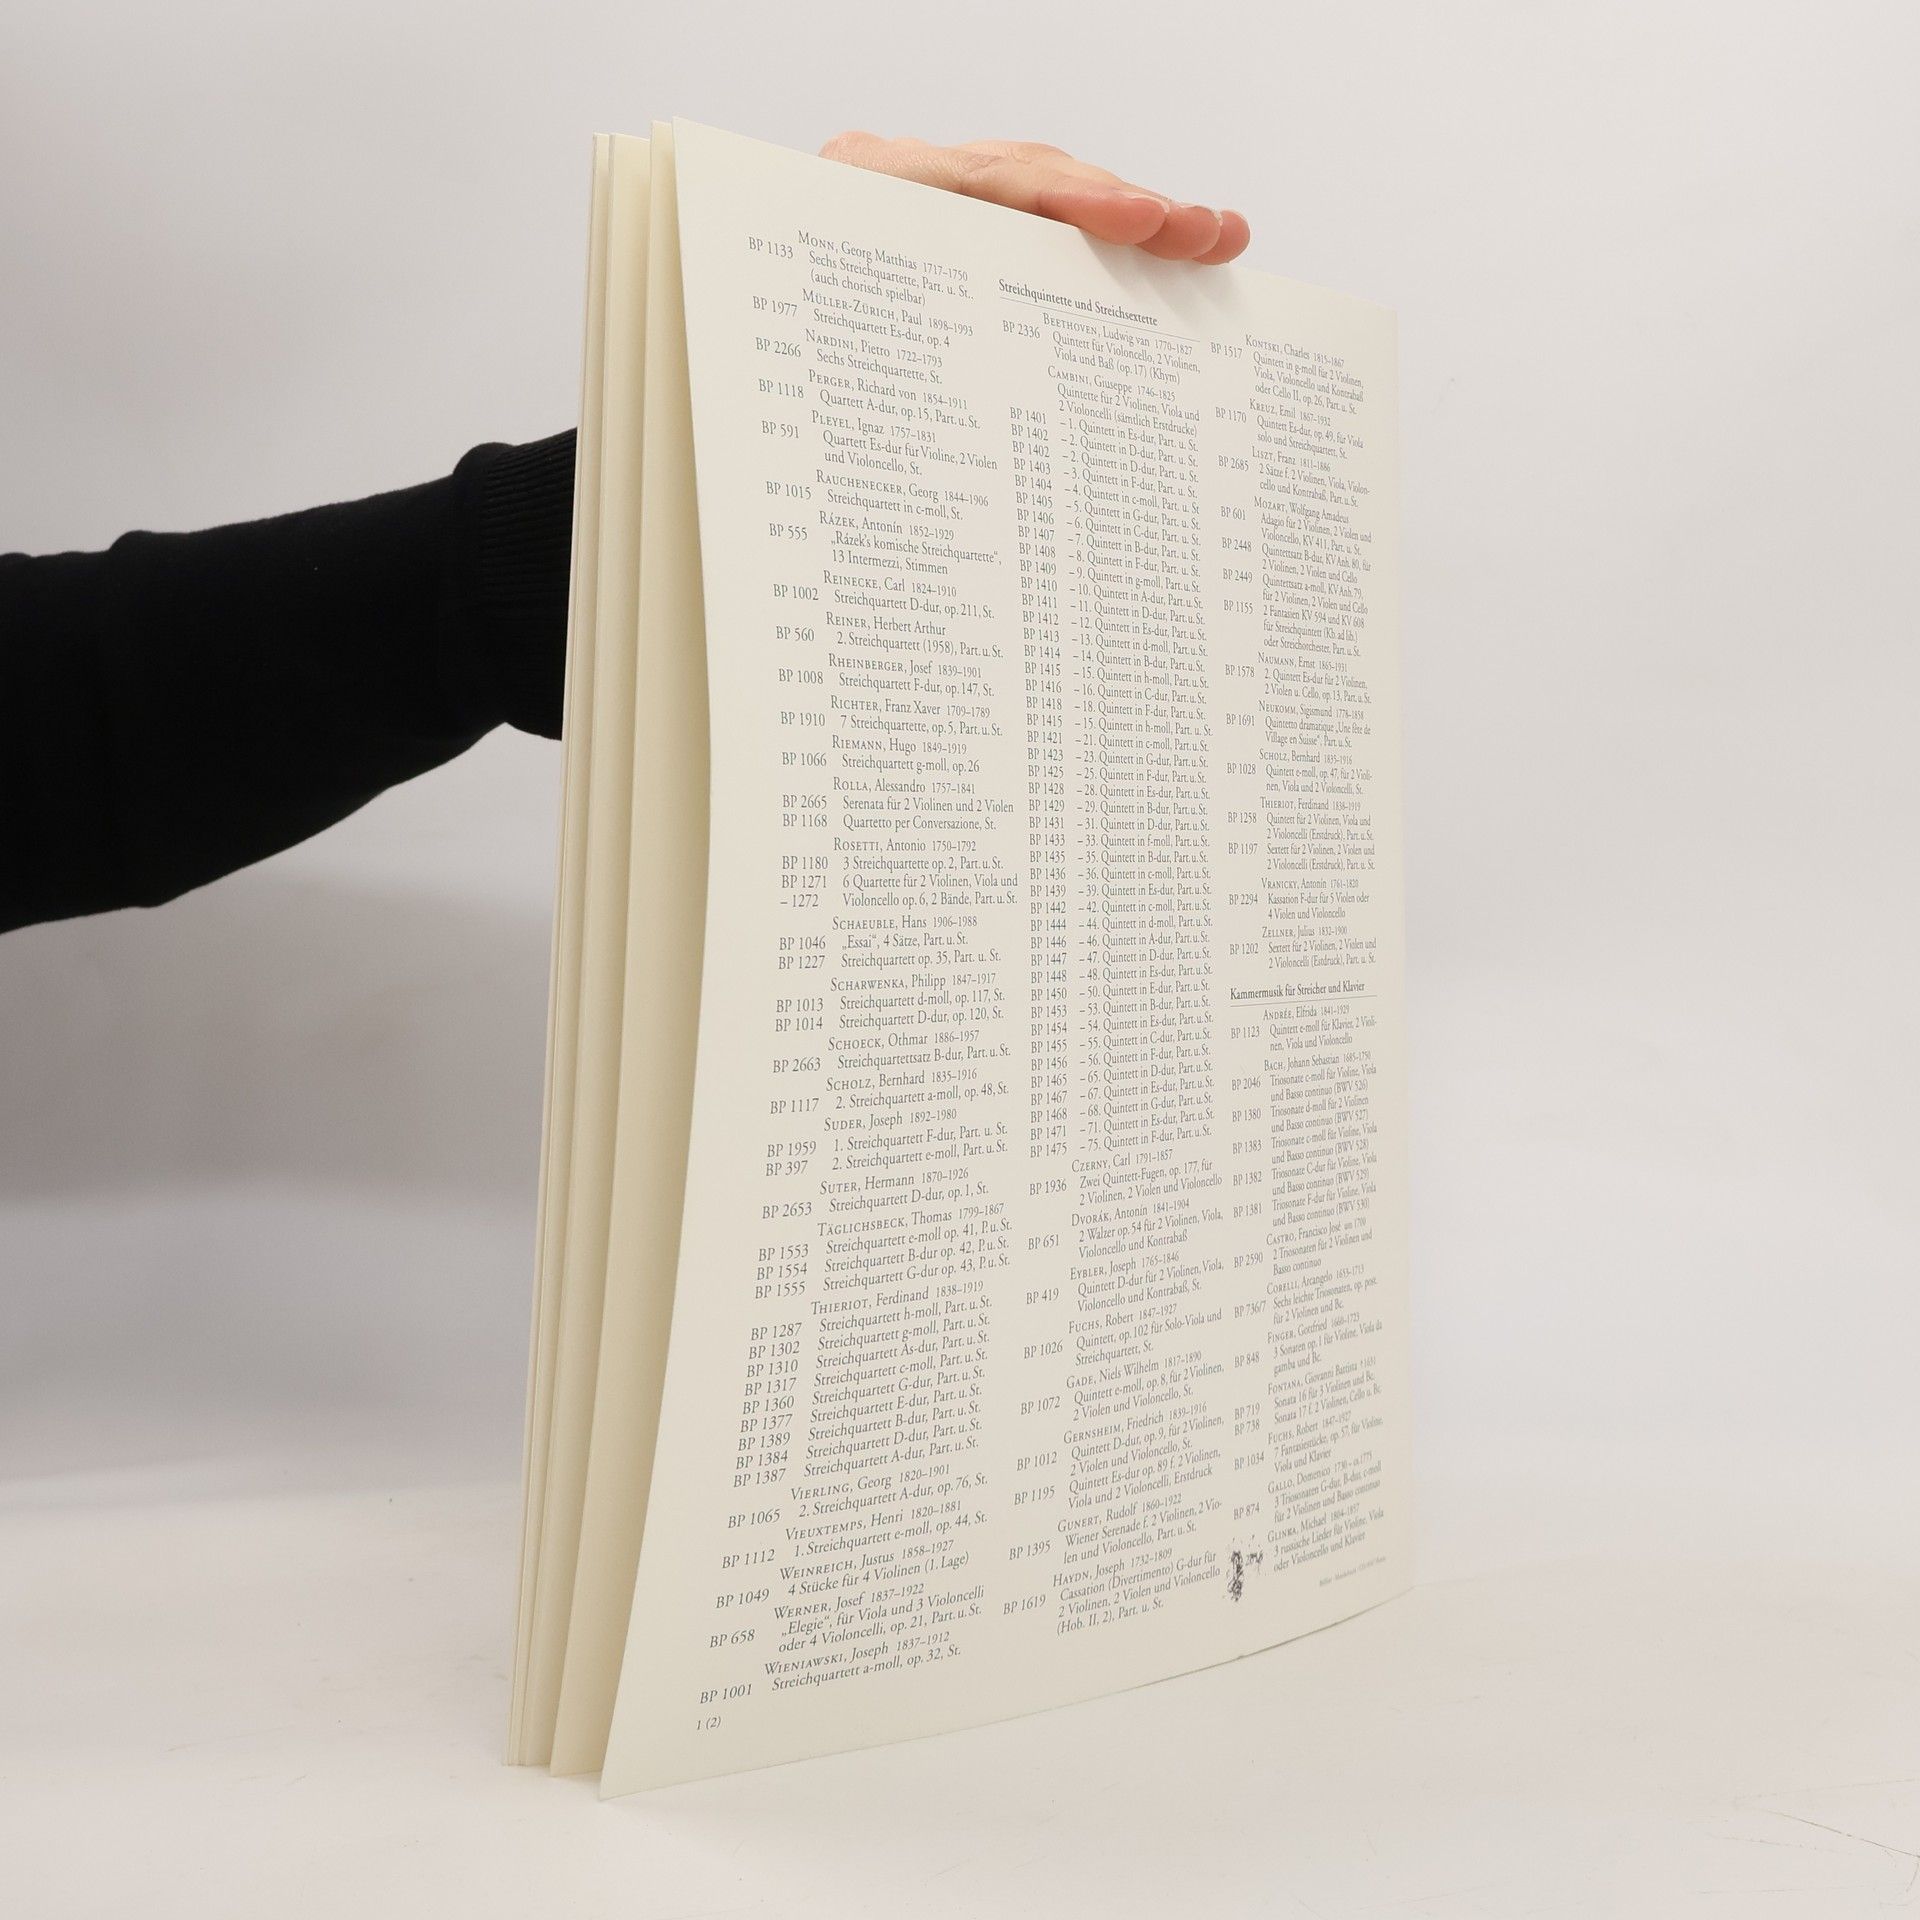 MONN, Georg Matthias 1717–1750
BP 1133 Sechs Streichquartette, Part. u. St..
(auch chorisch spielbar)
MÜLLER-ZÜRICH, Paul 1898–1993
BP 1977 Streichquartett Es-dur, op. 4
NARDINI, Pietro 1722–1793
BP 2266 Sechs Streichquartette, St.
PERGER, Richard von 1854–1911
BP 1118 Quartett A-dur, op. 15, Part. u. St.
PLEYEL, Ignaz 1757–1831
BP 591 Quartett Es-dur für Violine, 2 Violen
und Violoncello, St.
RAUCHENECKER, Georg 1844–1906
BP 1015 Streichquartett in c-moll, St.
RÁZEK, Antonín 1852–1929
BP 555 „Rázek's komische Streichquartette“,
13 Intermezzi, Stimmen
REINECKE, Carl 1824–1910
BP 1002 Streichquartett D-dur, op. 211, St.
REINER, Herbert Arthur
BP 560 2. Streichquartett (1958), Part. u. St.
RHEINBERGER, Josef 1839–1901
BP 1008 Streichquartett F-dur, op. 147, St.
RICHTER, Franz Xaver 1709–1789
BP 1910 7 Streichquartette, op. 5, Part. u. St.
RIEMANN, Hugo 1849–1919
BP 1066 Streichquartett g-moll, op. 26
ROLLA, Alessandro 1757–1841
BP 2665 Serenata für 2 Violinen und 2 Violen
BP 1168 Quartetto per Conversazione, St.
ROSETTI, Antonio 1750–1792
BP 1180 3 Streichquartette op. 2, Part. u. St.
BP 1271 6 Quartette für 2 Violinen, Viola und
– 1272 Violoncello op. 6, 2 Bände, Part. u. St.
SCHAEUBLE, Hans 1906–1988
BP 1046 „Essai“, 4 Sätze, Part. u. St.
BP 1227 Streichquartett op. 35, Part. u. St.
SCHARWENKA, Philipp 1847–1917
BP 1013 Streichquartett d-moll, op. 117, St.
BP 1014 Streichquartett D-dur, op. 120, St.
SCHOECK, Othmar 1886–1957
BP 2663 Streichquartettsatz B-dur, Part. u. St.
SCHOLZ, Bernhard 1835–1916
BP 1117 2. Streichquartett a-moll, op. 48, St.
SUDER, Joseph 1892–1980
BP 1959 1. Streichquartett F-dur, Part. u. St.
BP 397 2. Streichquartett e-moll, Part. u. St.
SUTER, Hermann 1870–1926
BP 2653 Streichquartett D-dur, op. 1, St.
TÄGLICHSBECK, Thomas 1799–1867
BP 1553 Streichquartett e-moll op. 41, P. u. St.
BP 1554 Streichquartett B-dur op. 42, P. u. St.
BP 1555 Streichquartett G-dur op. 43, P. u. St.
THIERIOT, Ferdinand 1838–1919
BP 1287 Streichquartett h-moll, Part. u. St.
BP 1302 Streichquartett g-moll, Part. u. St.
BP 1310 Streichquartett As-dur, Part. u. St.
BP 1317 Streichquartett c-moll, Part. u. St.
BP 1360 Streichquartett G-dur, Part. u. St.
BP 1377 Streichquartett E-dur, Part. u. St.
BP 1389 Streichquartett B-dur, Part. u. St.
BP 1384 Streichquartett D-dur, Part. u. St.
BP 1387 Streichquartett A-dur, Part. u. St.
VIERLING, Georg 1820–1901
BP 1065 2. Streichquartett A-dur, op. 76, St.
VIEUXTEMPS, Henri 1820–1881
BP 1112 1. Streichquartett e-moll, op. 44, St.
WEINREICH, Justus 1858–1927
BP 1049 4 Stücke für 4 Violinen (1. Lage)
WERNER, Josef 1837–1922
BP 658 „Elegie“, für Viola und 3 Violoncelli
oder 4 Violoncelli, op. 21, Part. u. St.
WIENIAWSKI, Joseph 1837–1912
BP 1001 Streichquartett a-moll, op. 32, St.
1 (2)
Streichquintette und Streichsextette
BEETHOVEN, Ludwig van 1770–1827
BP 2336 Quintett für Violoncello, 2 Violinen,
Viola und Baß (op. 17) (Khym)
CAMBINI, Giuseppe 1746–1825
Quintette für 2 Violinen, Viola und
2 Violoncelli (sämtlich Erstdrucke)
BP 1401 – 1. Quintett in Es-dur, Part. u. St.
BP 1402 – 2. Quintett in D-dur, Part. u. St.
BP 1402 – 2. Quintett in D-dur, Part. u. St.
BP 1403 – 3. Quintett in F-dur, Part. u. St.
BP 1404 – 4. Quintett in c-moll, Part. u. St.
BP 1405 – 5. Quintett in G-dur, Part. u. St.
BP 1406 – 6. Quintett in C-dur, Part. u. St.
BP 1407 – 7. Quintett in B-dur, Part. u. St.
BP 1408 – 8. Quintett in F-dur, Part. u. St.
BP 1409 – 9. Quintett in g-moll, Part. u. St.
BP 1410 – 10. Quintett in A-dur, Part. u. St.
BP 1411 – 11. Quintett in D-dur, Part. u. St.
BP 1412 – 12. Quintett in Es-dur, Part. u. St.
BP 1413 – 13. Quintett in d-moll, Part. u. St.
BP 1414 – 14. Quintett in B-dur, Part. u. St.
BP 1415 – 15. Quintett in h-moll, Part. u. St.
BP 1416 – 16. Quintett in C-dur, Part. u. St.
BP 1418 – 18. Quintett in F-dur, Part. u. St.
BP 1415 – 15. Quintett in h-moll, Part. u. St.
BP 1421 – 21. Quintett in c-moll, Part. u. St.
BP 1423 – 23. Quintett in G-dur, Part. u. St.
BP 1425 – 25. Quintett in F-dur, Part. u. St.
BP 1428 – 28. Quintett in Es-dur, Part. u. St.
BP 1429 – 29. Quintett in B-dur, Part. u. St.
BP 1431 – 31. Quintett in D-dur, Part. u. St.
BP 1433 – 33. Quintett in f-moll, Part. u. St.
BP 1435 – 35. Quintett in B-dur, Part. u. St.
BP 1436 – 36. Quintett in c-moll, Part. u. St.
BP 1439 – 39. Quintett in Es-dur, Part. u. St.
BP 1442 – 42. Quintett in c-moll, Part. u. St.
BP 1444 – 44. Quintett in d-moll, Part. u. St.
BP 1446 – 46. Quintett in A-dur, Part. u. St.
BP 1447 – 47. Quintett in D-dur, Part. u. St.
BP 1448 – 48. Quintett in Es-dur, Part. u. St.
BP 1450 – 50. Quintett in E-dur, Part. u. St.
BP 1453 – 53. Quintett in B-dur, Part. u. St.
BP 1454 – 54. Quintett in Es-dur, Part. u. St.
BP 1455 – 55. Quintett in C-dur, Part. u. St.
BP 1456 – 56. Quintett in F-dur, Part. u. St.
BP 1465 – 65. Quintett in D-dur, Part. u. St.
BP 1467 – 67. Quintett in Es-dur, Part. u. St.
BP 1468 – 68. Quintett in G-dur, Part. u. St.
BP 1471 – 71. Quintett in Es-dur, Part. u. St.
BP 1475 – 75. Quintett in F-dur, Part. u. St.
CZERNY, Carl 1791–1857
BP 1936 Zwei Quintett-Fugen, op. 177, für
2 Violinen, 2 Violen und Violoncello
DVORÁK, Antonín 1841–1904
BP 651 2 Walzer op. 54 für 2 Violinen, Viola,
Violoncello und Kontrabaß
EYBLER, Joseph 1765–1846
BP 419 Quintett D-dur für 2 Violinen, Viola,
Violoncello und Kontrabaß, St.
FUCHS, Robert 1847–1927
BP 1026 Quintett, op. 102 für Solo-Viola und
Streichquartett, St.
GADE, Niels Wilhelm 1817–1890
BP 1072 Quintett e-moll, op. 8, für 2 Violinen,
2 Violen und Violoncello, St.
GERNSHEIM, Friedrich 1839–1916
BP 1012 Quintett D-dur, op. 9, für 2 Violinen,
2 Violen und Violoncello, St.
BP 1195 Quintett Es-dur op. 89 f. 2 Violinen,
Viola und 2 Violoncelli, Erstdruck
GUNERT, Rudolf 1860–1922
BP 1395 Wiener Serenade f. 2 Violinen, 2 Vio-
len und Violoncello, Part. u. St.
HAYDN, Joseph 1732–1809
BP 1619 Cassation (Divertimento) G-dur für
2 Violinen, 2 Violen und Violoncello
(Hob. II, 2), Part. u. St.
KONTSKI, Charles 1815–1867
BP 1517 Quintett in g-moll für 2 Violinen,
Viola, Violoncello und Kontrabaß
oder Cello II, op. 26, Part. u. St.
KREUZ, Emil 1867–1932
BP 1170 Quintett Es-dur, op. 49, für Viola
solo und Streichquartett, St.
LISZT, Franz 1811–1886
BP 2685 2 Sätze f. 2 Violinen, Viola, Violon-
cello und Kontrabaß, Part. u. St.
MOZART, Wolfgang Amadeus
BP 601 Adagio für 2 Violinen, 2 Violen und
Violoncello, KV 411, Part. u. St.
BP 2448 Quintettsatz B-dur, KV Anh. 80, für
2 Violinen, 2 Violen und Cello
BP 2449 Quintettsatz a-moll, KV Anh. 79,
für 2 Violinen, 2 Violen und Cello
BP 1155 2 Fantasien KV 594 und KV 608
für Streichquintett (Kb. ad lib.)
oder Streichorchester, Part. u. St.
NAUMANN, Ernst
BP 1578 2. Quintett Es-dur für 2 Violinen,
2 Violen u. Cello, op. 13, Part. u. St.
NEUKOMM, Sigismund 1778–1858
BP 1691 Quintetto dramatique „Une fête de
Village en Suisse“, Part. u. St.
SCHOLZ, Bernhard 1835–1916
BP 1028 Quintett e-moll, op. 47, für 2 Violi-
nen, Viola und 2 Violoncelli, St.
THIERIOT, Ferdinand 1838–1919
BP 1258 Quintett für 2 Violinen, Viola und
2 Violoncelli (Erstdruck), Part. u. St.
BP 1197 Sextett für 2 Violinen, 2 Violen und
2 Violoncelli (Erstdruck), Part. u. St.
VRANICKY, Antonín 1761–1820
BP 2294 Kassation F-dur für 5 Violen oder
4 Violen und Violoncello
ZELLNER, Julius 1832–1900
BP 1202 Sextett für 2 Violinen, 2 Violen und
2 Violoncelli (Erstdruck), Part. u. St.
Kammermusik für Streicher und Klavier
ANDRÉE, Elfrida 1841–1929
BP 1123 Quintett e-moll für Klavier, 2 Violi-
nen, Viola und Violoncello
BACH, Johann Sebastian 1685–1750
BP 2046 Triosonate c-moll für Violine, Viola
und Basso continuo (BWV 526)
BP 1380 Triosonate d-moll für 2 Violinen
und Basso continuo (BWV 527)
BP 1383 Triosonate e-moll für Violine, Viola
und Basso continuo (BWV 528)
BP 1382 Triosonate C-dur für Violine, Viola
und Basso continuo (BWV 529)
BP 1381 Triosonate F-dur für Violine, Viola
und Basso continuo (BWV 530)
CASTRO, Francisco José um 1700
BP 2590 2 Triosonaten für 2 Violinen und
Basso continuo
CORELLI, Arcangelo 1653–1713
BP 736/7 Sechs leichte Triosonaten, op. post.
für 2 Violinen und Bc.
FINGER, Gottfried 1660–1723
BP 848 3 Sonaten op. 1 für Violine, Viola da
gamba und Bc.
FONTANA, Giovanni Battista † 1631
BP 719 Sonata 16 für 3 Violinen und Bc.
BP 738 Sonata 17 f. 2 Violinen, Cello u. Bc.
FUCHS, Robert 1847–1927
BP 1034 7 Fantasiestücke, op. 57, für Violine,
Viola und Klavier
GALLO, Domenico 1730 – ca. 1775
BP 874 3 Triosonaten G-dur, B-dur, c-moll
für 2 Violinen und Basso continuo
GLINKA, Michael 1804–1857
3 russische Lieder für Violine, Viola
oder Violoncello und Klavier